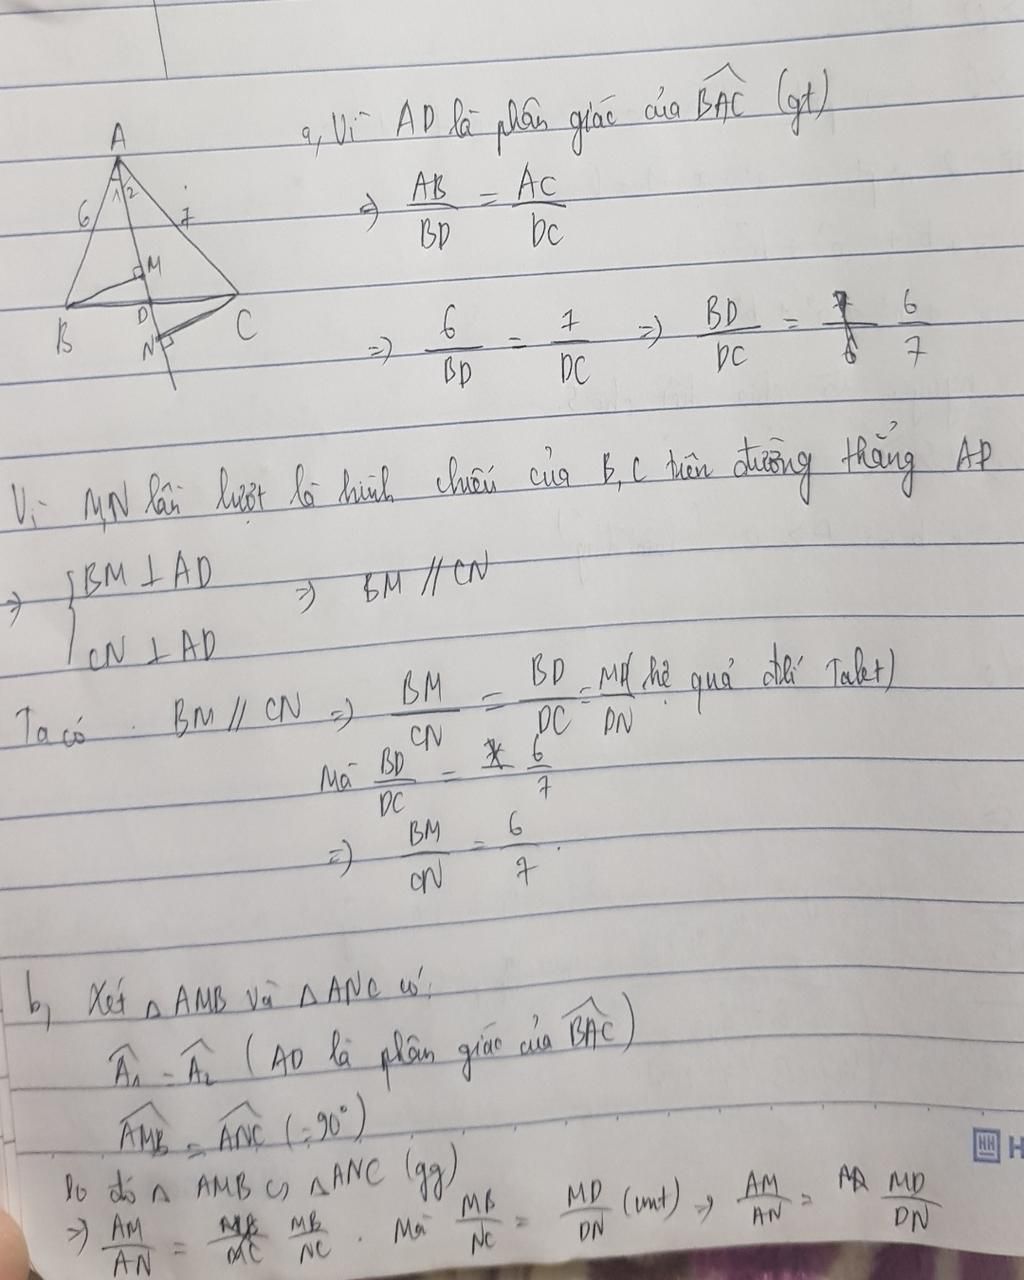 a, Vì AD là phân giác của \widehat{BAC} (gt)
A
1 2
6
7
M
B
D
C
N
=> AB/BD = AC/DC
=> 6/BD = 7/DC => BD/DC = 6/7
Vì M,N lần lượt là hình chiếu của B, C trên đường thẳng AD
=> { BM ⊥ AD => BM // CN
CN ⊥ AD
Ta có BM // CN => BM/CN = BD/DC = MD/DN (hệ quả đlí Talet)
Mà BD/DC = 6/7
=> BM/CN = 6/7.
b, Xét △ AMB và △ ANC có:
\widehat{A}₁ = \widehat{A}₂ (AD là phân giác của \widehat{BAC})
\widehat{AMB} = \widehat{ANC} (=90°)
Do đó △ AMB ∽ △ANC (gg)
=> AM/AN = MB/NC. Mà MB/NC = MD/DN (cmt) => AM/AN = MD/DN
HH H